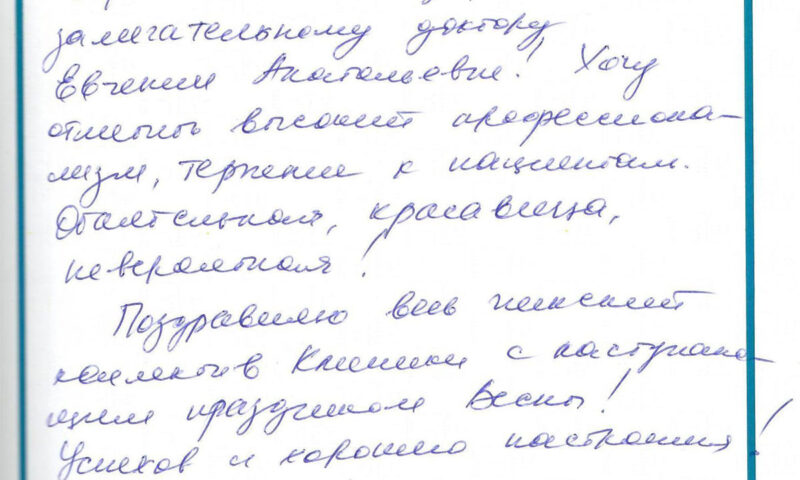 замечательному доктору
Евгении Анатольевне! Хочу
отметить высокий профессиона-
лизм, терпение к пациентам.
Обаятельная, красавица,
невероятная!
Поздравляю весь женский
коллектив Клиники с наступаю-
щим праздником Весны!
Успехов и хорошего настроения!